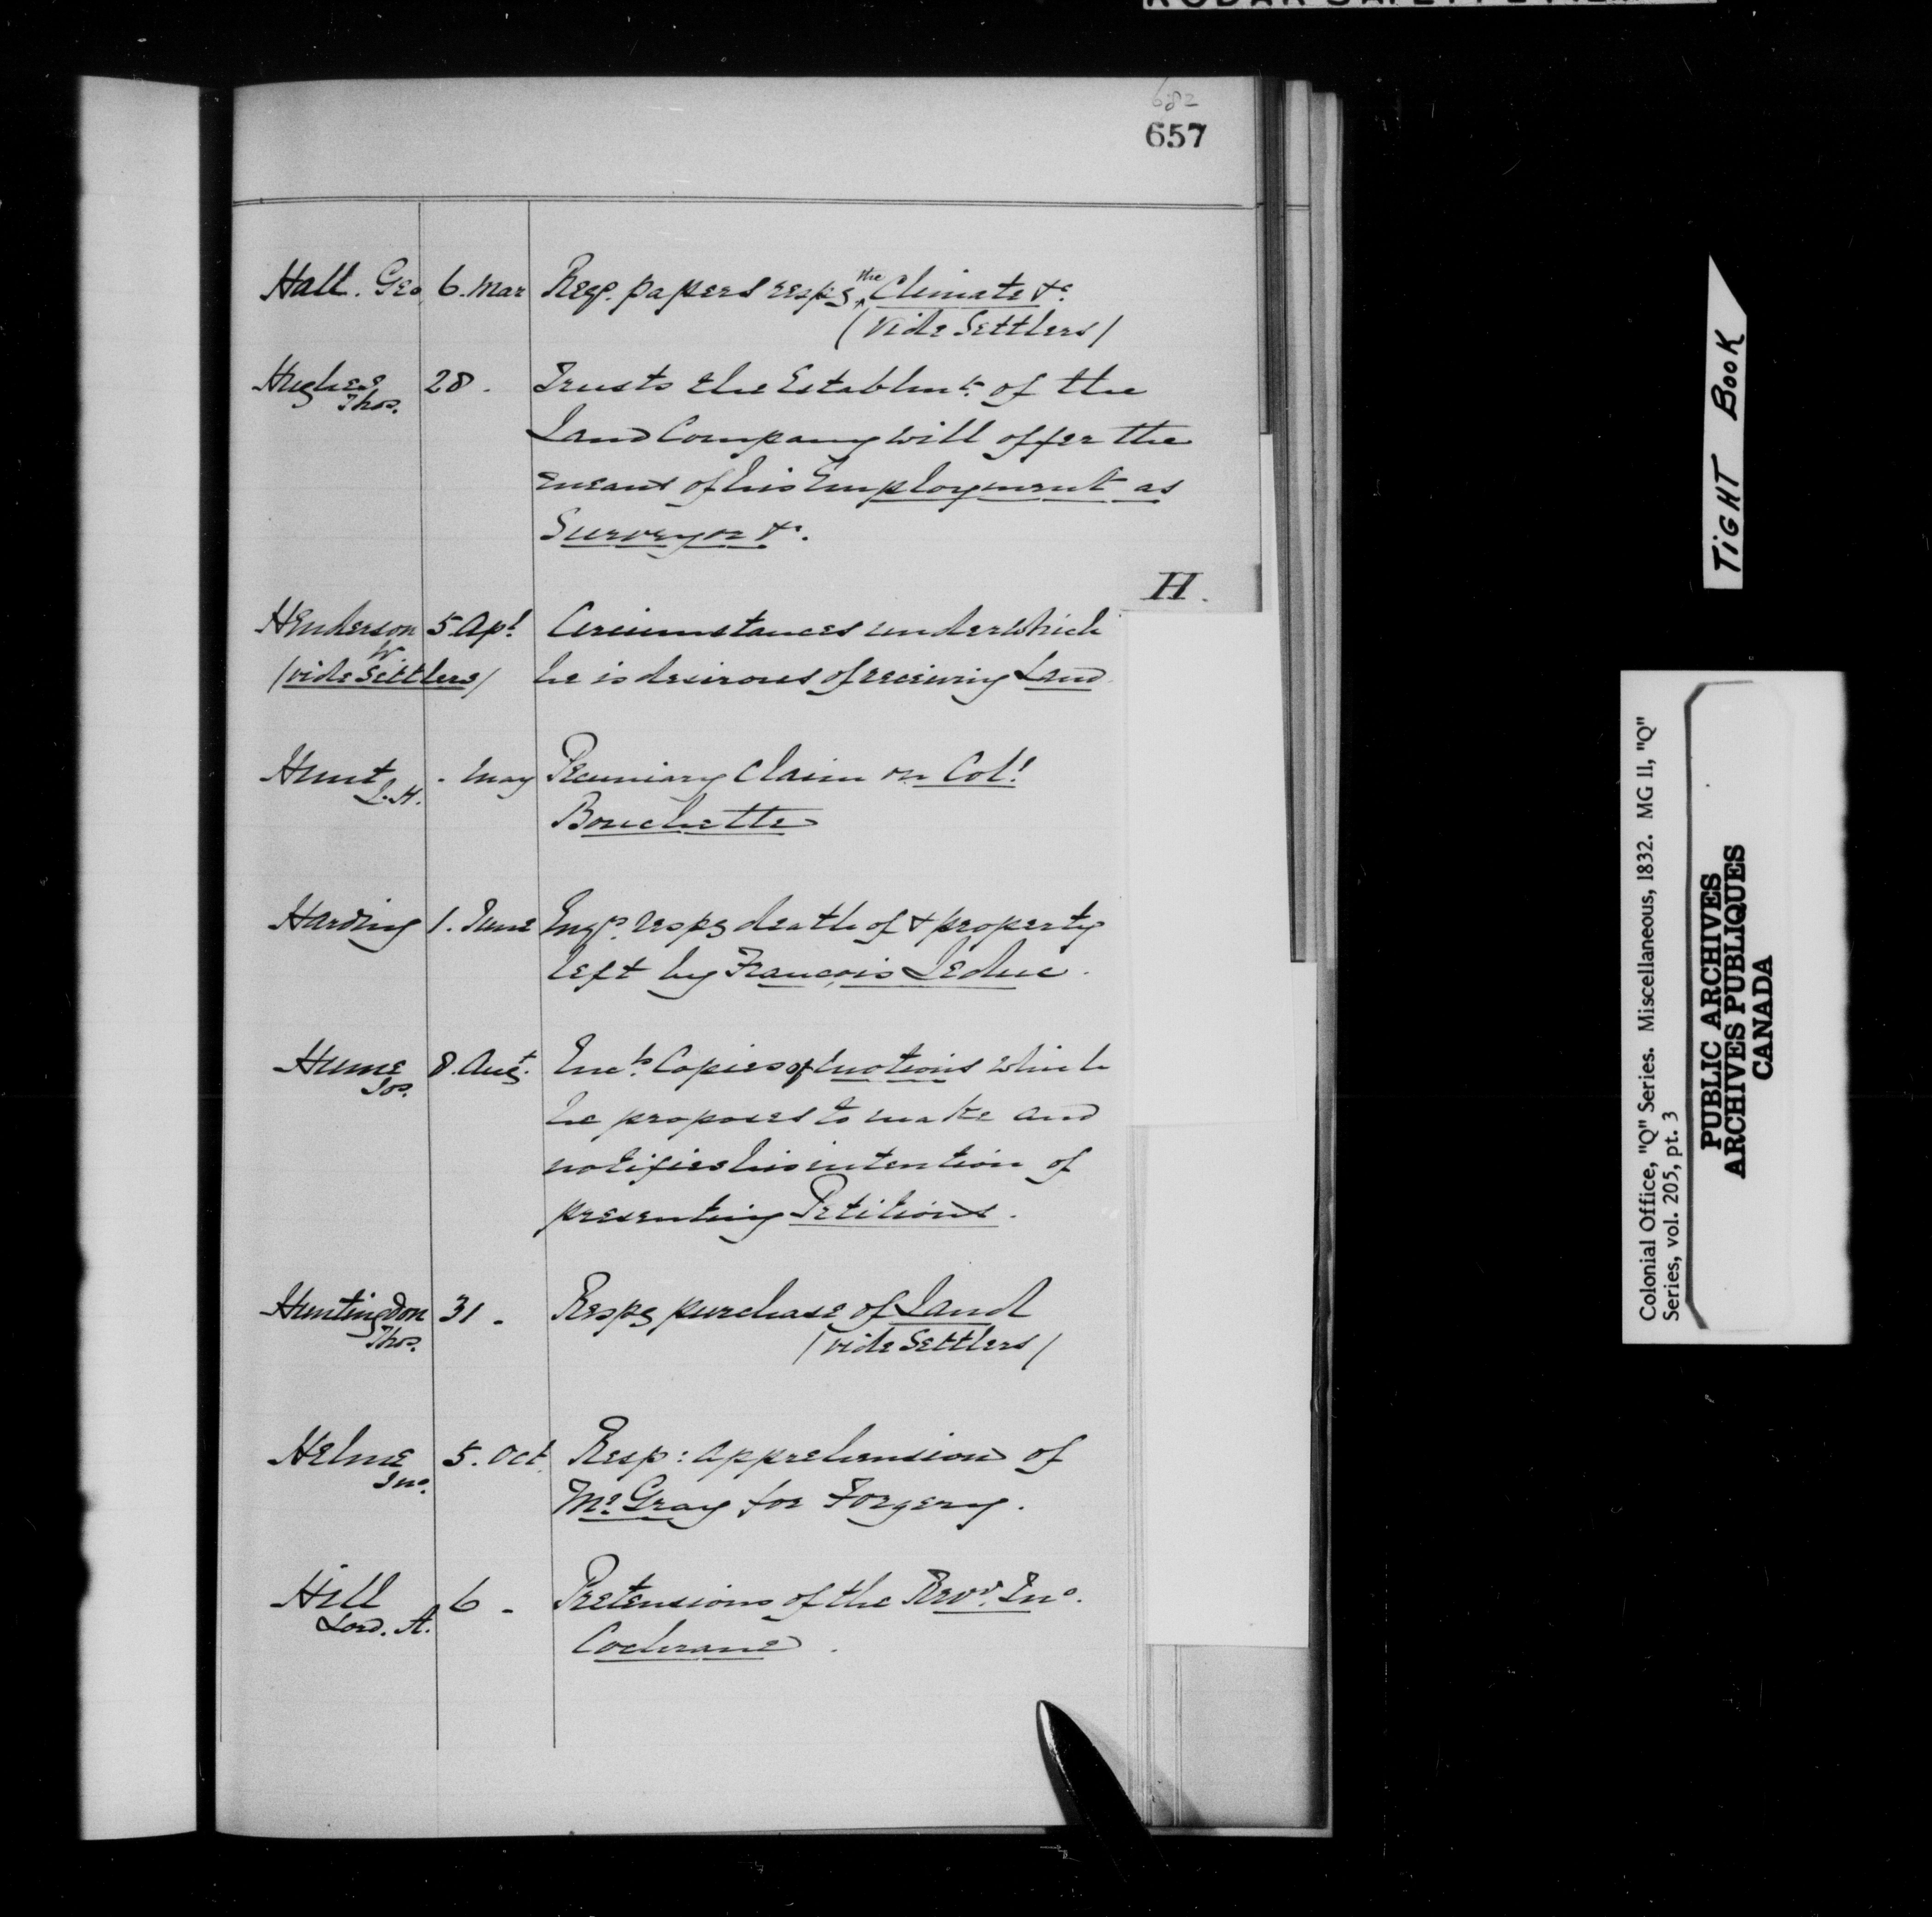 682
657
Hall. Geo 6. Mar Reqs. papers respg the Climate &c
(vide Settlers)
Hughes Thos. 28. Trusts the Establmt. of the
Land Company will offer the
means of his Employment as
Surveyor &c.
H.
Henderson W 5 Apl. Circumstances under which
(vide Settlers) he is desirous of receiving Land
Hunt J. H. - May Pecuniary Claim on Col!
Bouchette
Harding 1. June Inqs. respg death of & property
left by Francois Leduc.
Hume Jos. 8. Augt. Encls. Copies of motions which
he proposes to make and
notifies his intention of
presenting Petitions.
Huntingdon Thos. 31. Respg purchase of Land
(vide Settlers)
Helme Jno. 5. Oct. Resp: apprehension of
Mr. Gray for Forgery.
Hill Lord. A. 6 - Pretensions of the Revd. Jno.
Cochrane.
TIGHT BOOK
Colonial Office, "Q" Series. Miscellaneous, 1832. MG 11, "Q"
Series, vol. 205, pt. 3
PUBLIC ARCHIVES
ARCHIVES PUBLIQUES
CANADA